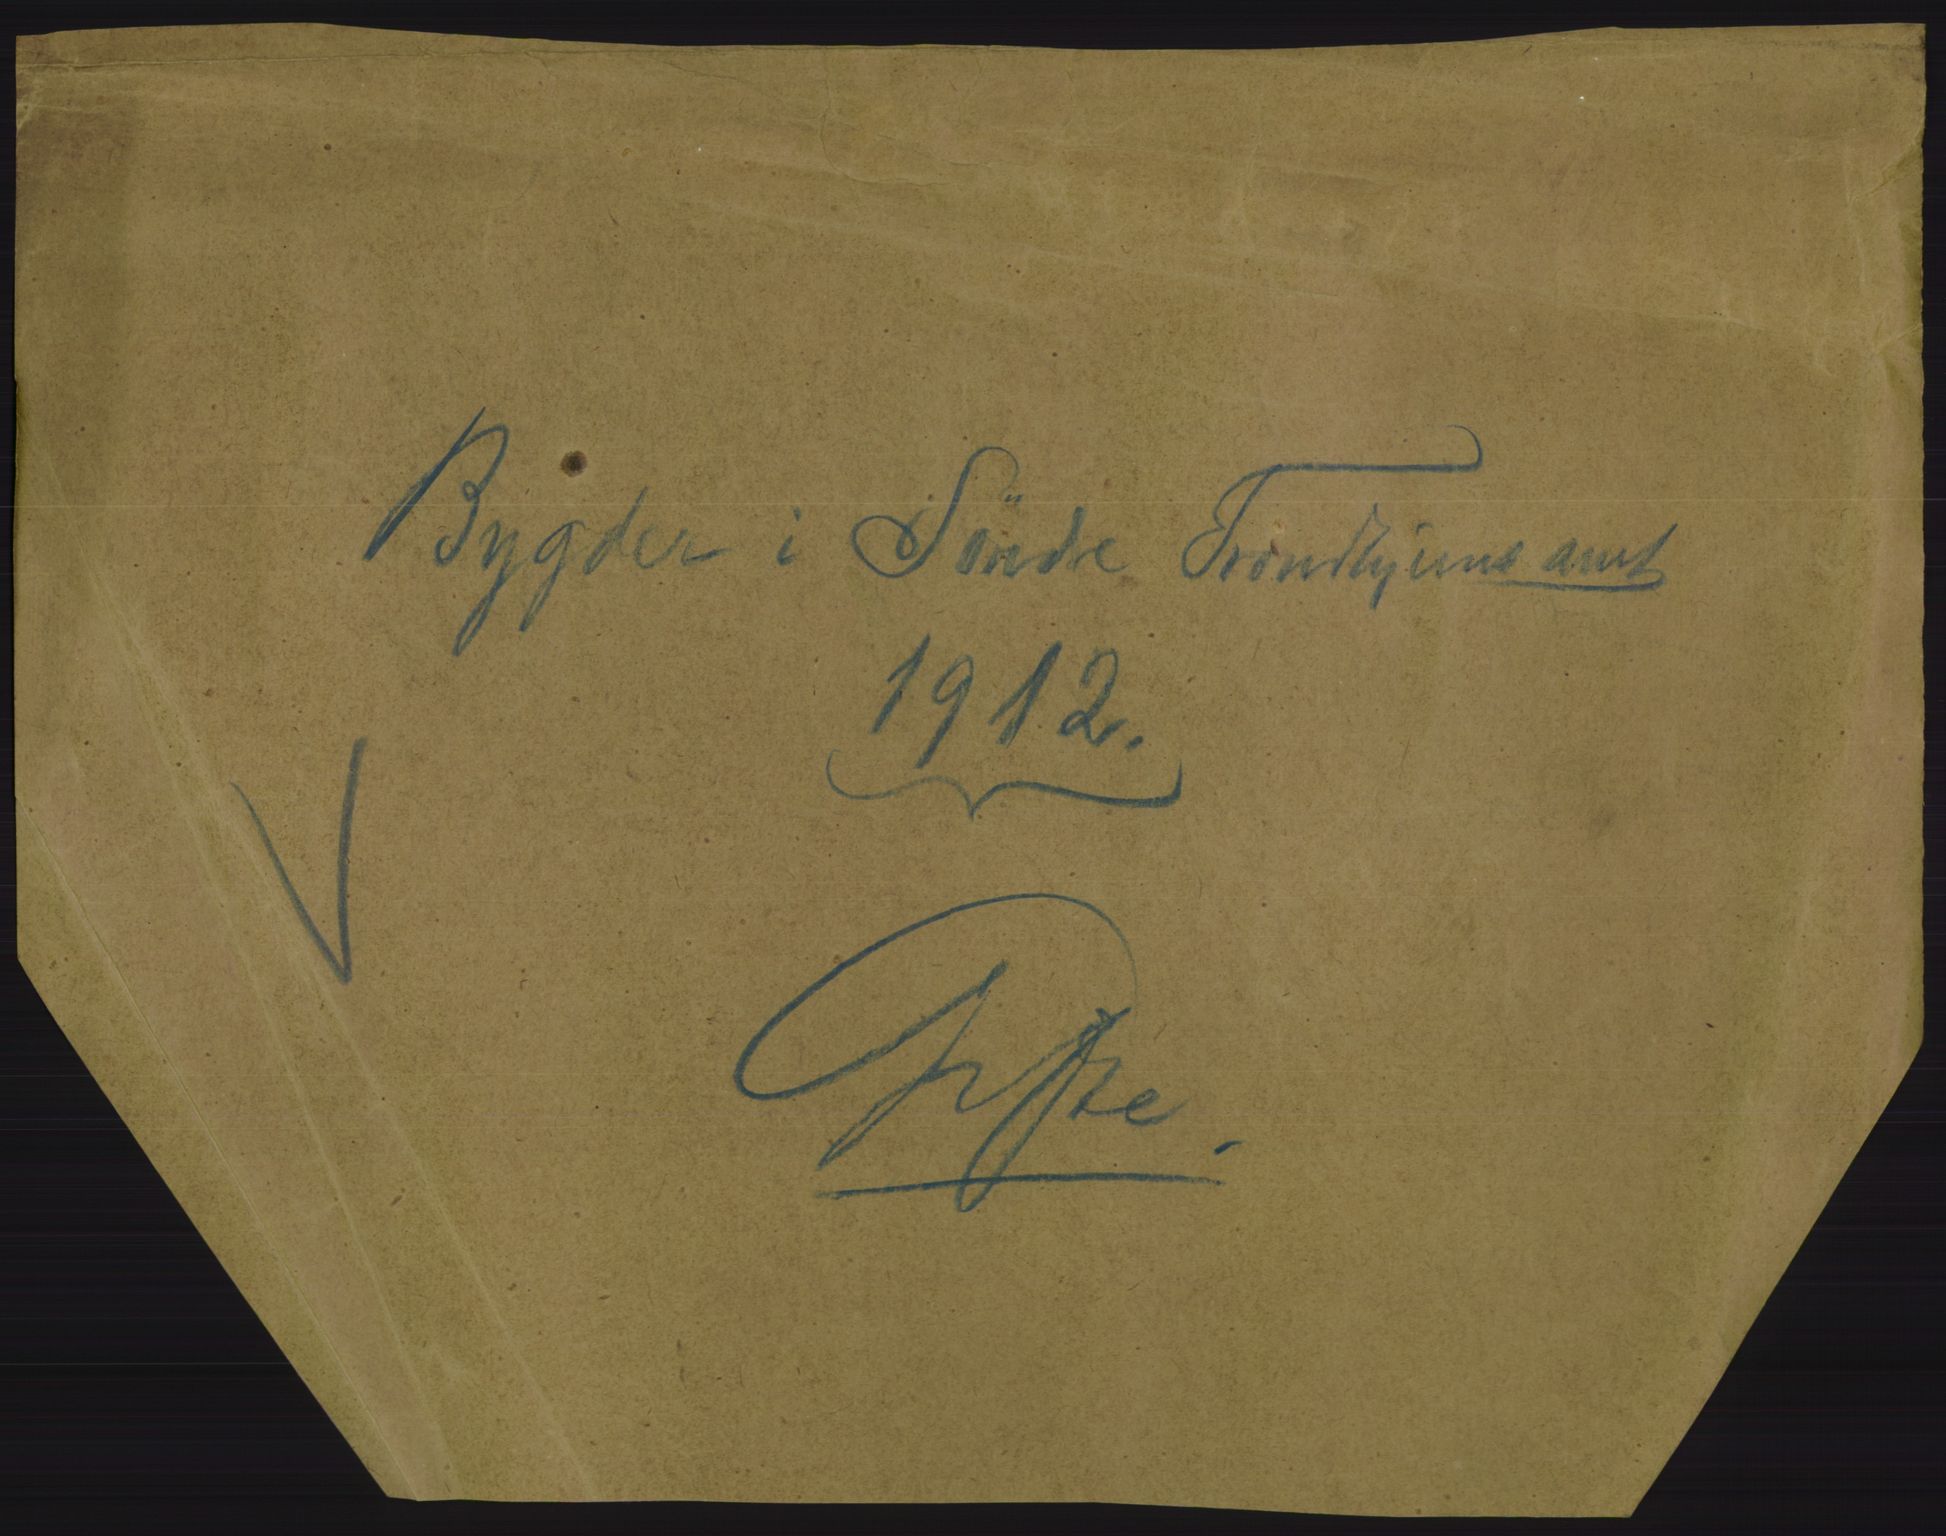 Bygder i Söndre Trondhjems amt
1912.
V